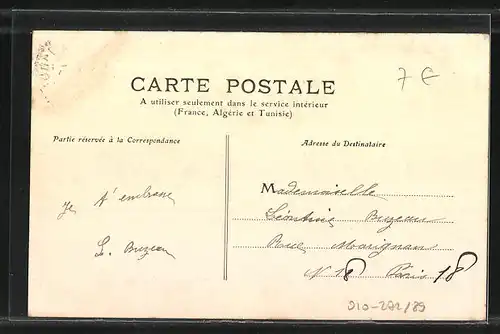 CARTE POSTALE
7 €
A utiliser seulement dans le service intérieur
(France, Algérie et Tunisie)
Partie réservée à la Correspondance
Adresse du Destinataire
Je t'embrasse
L. Buzeau
Mademoiselle
Léontine Buzeau
Rue Marignan
N 18 Paris 18